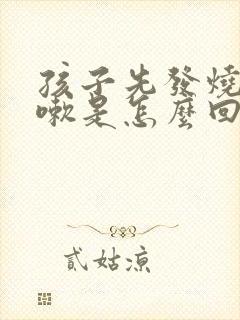 孩子先發燒
嗽是怎麼回
貳姑涼